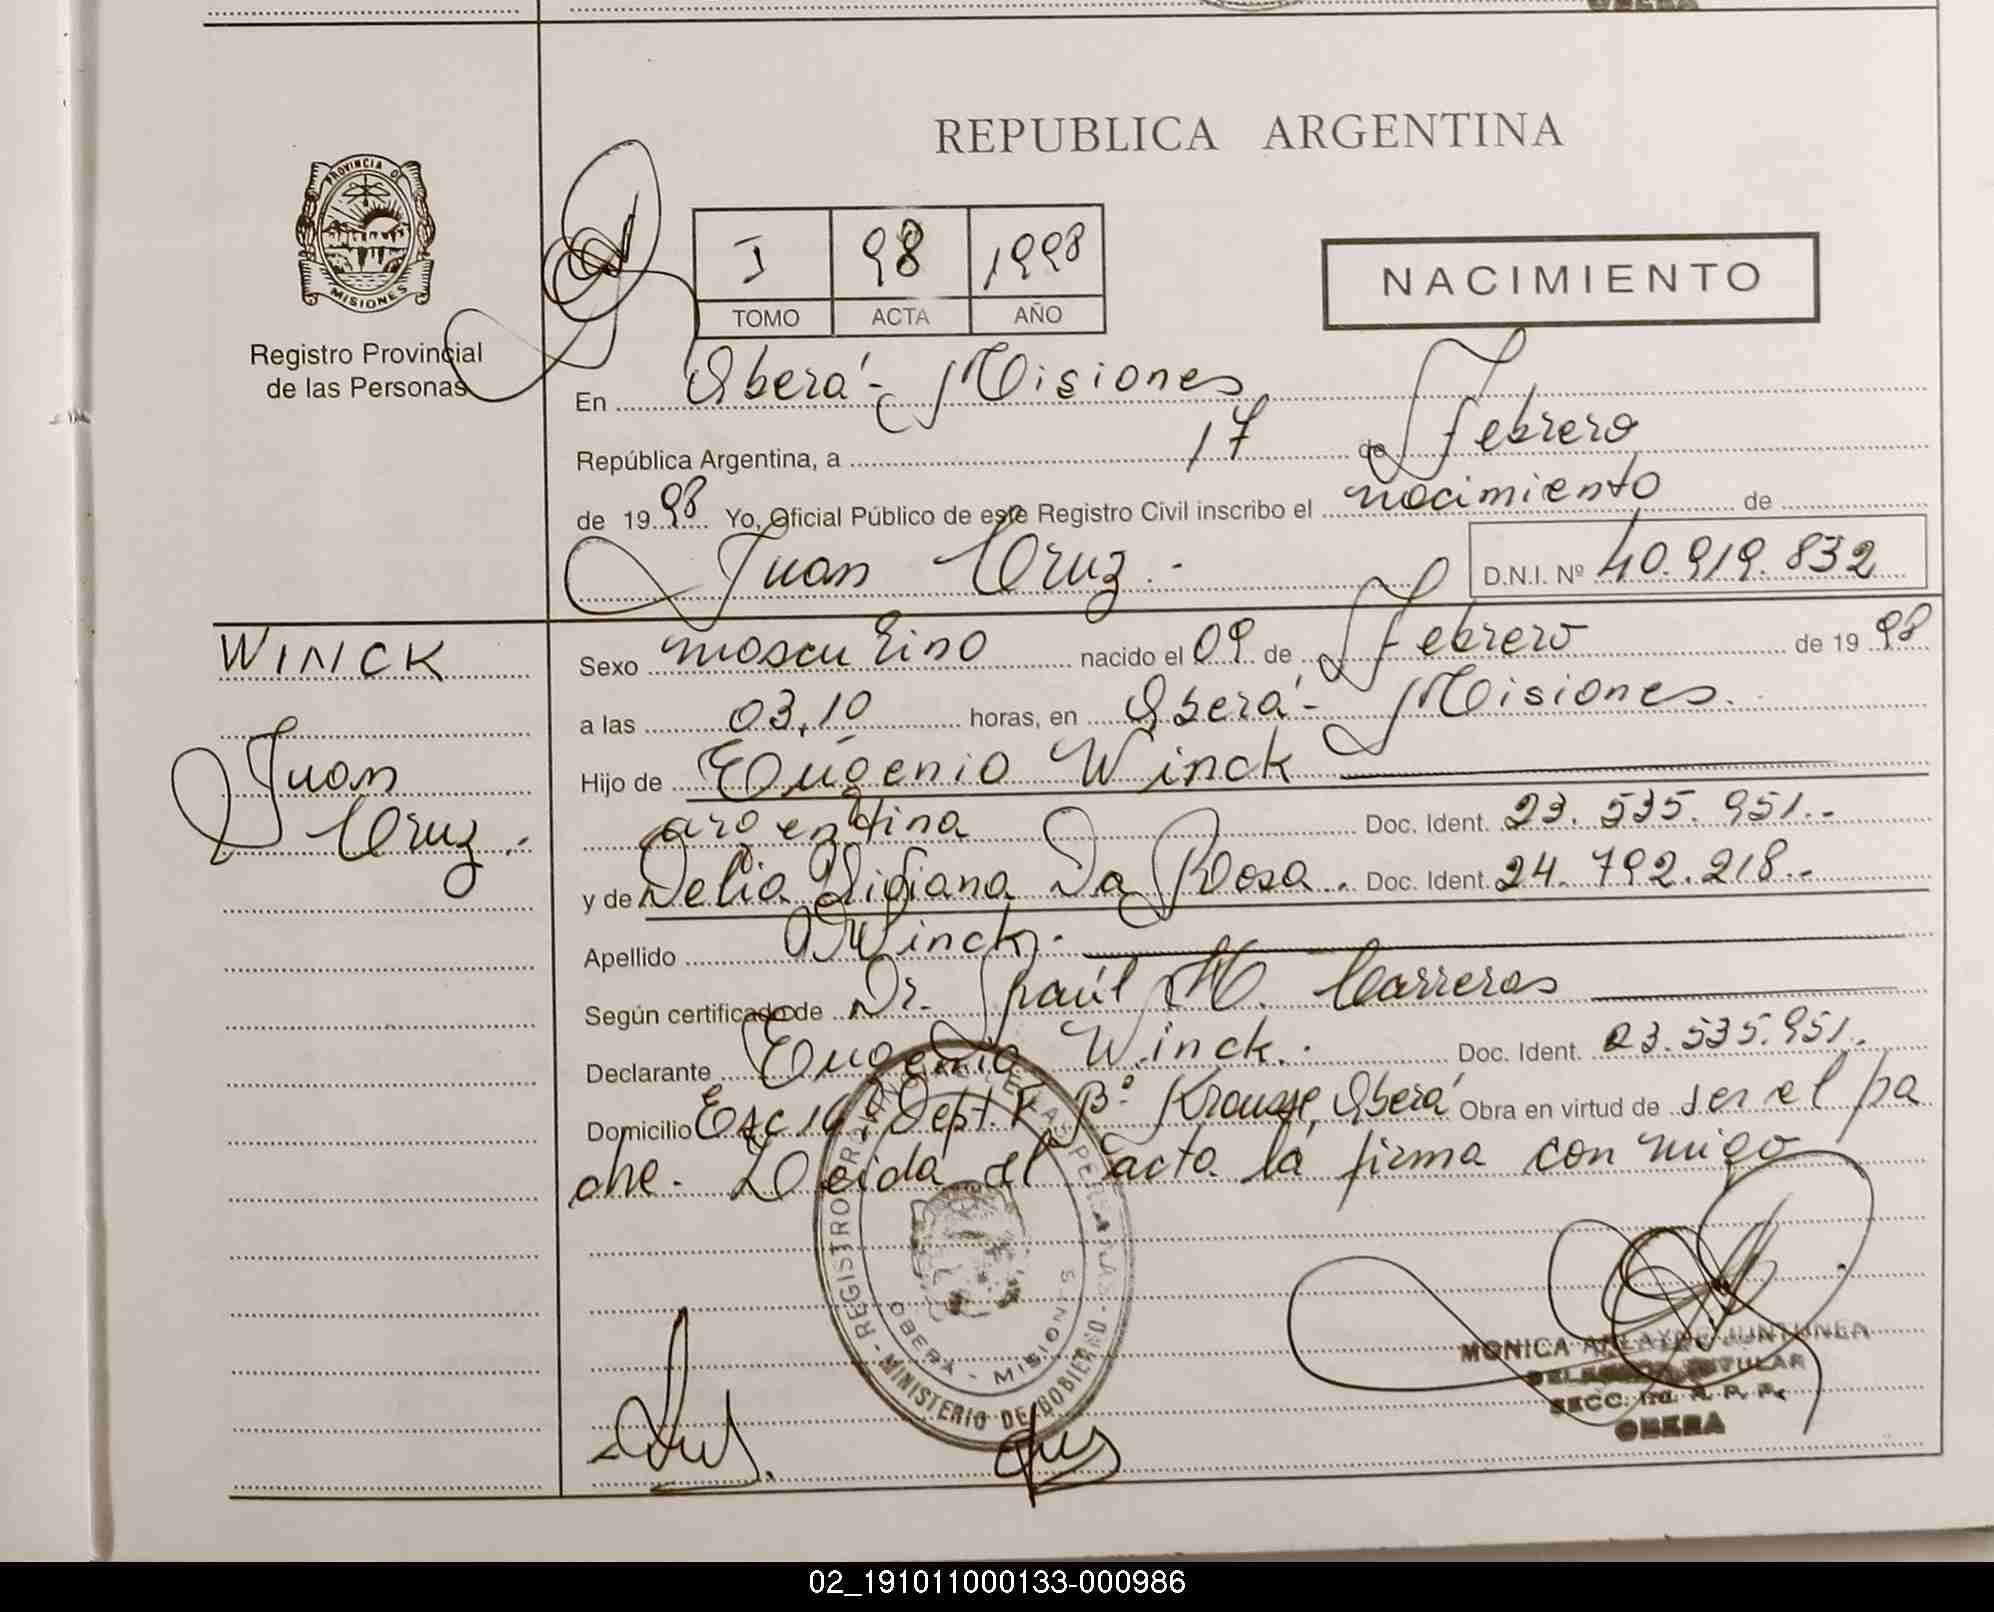 REPUBLICA ARGENTINA
PROVINCIA DE
MISIONES
Registro Provincial
de las Personas
I 98 1998
TOMO ACTA AÑO
NACIMIENTO
En Oberá - Misiones
República Argentina, a 17 de Febrero
de 1998 Yo, Oficial Público de este Registro Civil inscribo el nacimiento de
Juan Cruz.- D.N.I. Nº 40.919.832
WINCK
Juan
Cruz.-
Sexo masculino nacido el 09 de Febrero de 1998
a las 03,10 horas, en Oberá - Misiones.
Hijo de Eugenio Winck
argentina Doc. Ident. 23.535.951.-
y de Delia Da Rosa.. Doc. Ident. 24.792.218.-
Apellido Winck.-
Según certificado de Dr. Raúl M. Carreras
Declarante Eugenio Winck.. Doc. Ident. 23.535.951.
Domicilio Esc 16, Dept. F Bº Krausse, Oberá Obra en virtud de ser el pa
dre. Leída el acta la firma conmigo
REGISTRO PROVINCIAL DE LAS PERSONAS - MINISTERIO DE GOBIERNO
OBERA - MISIONES
MONICA JUNTUNEN
DELEGADA TITULAR
SECC. R. P. P.
OBERA
02_191011000133-000986